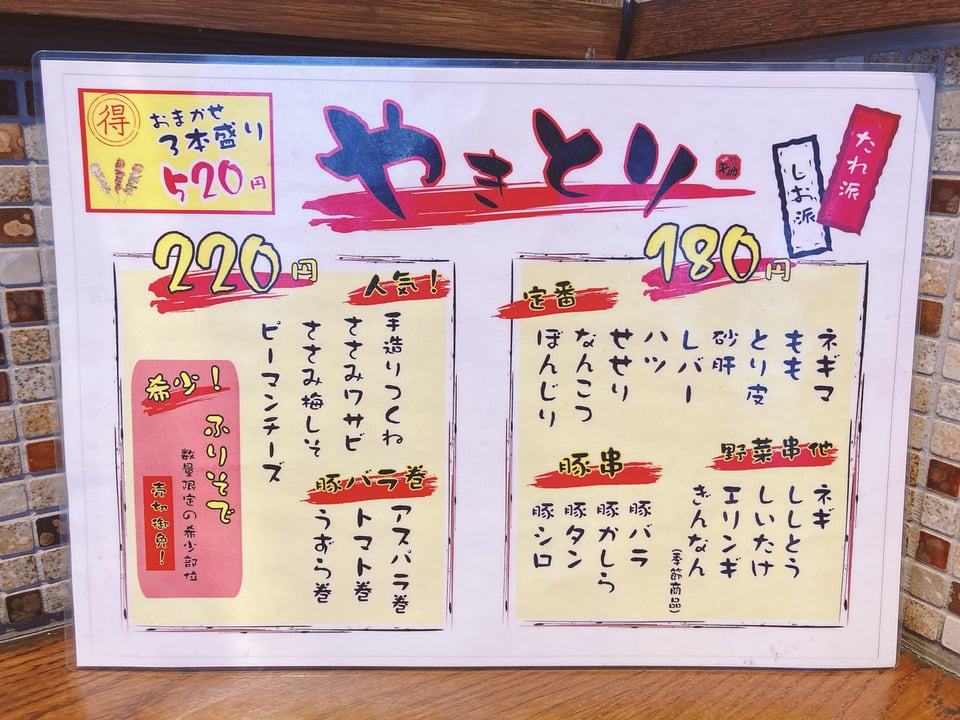 得
おまかせ
3本盛り
520円
やきとり
しお派
たれ派
180円
定番
ネギマ
もも
とり皮
砂肝
レバー
ハツ
せせり
なんこつ
ぼんじり
野菜串他
ネギ
ししとう
しいたけ
エリンギ
ぎんなん
(季節商品)
豚串
豚バラ
豚かしら
豚タン
豚シロ
220円
人気!
手造りつくね
ささみワサビ
ささみ梅しそ
ピーマンチーズ
豚バラ巻
アスパラ巻
トマト巻
うずら巻
希少!
ふりそで
数量限定の希少部位
売切御免!